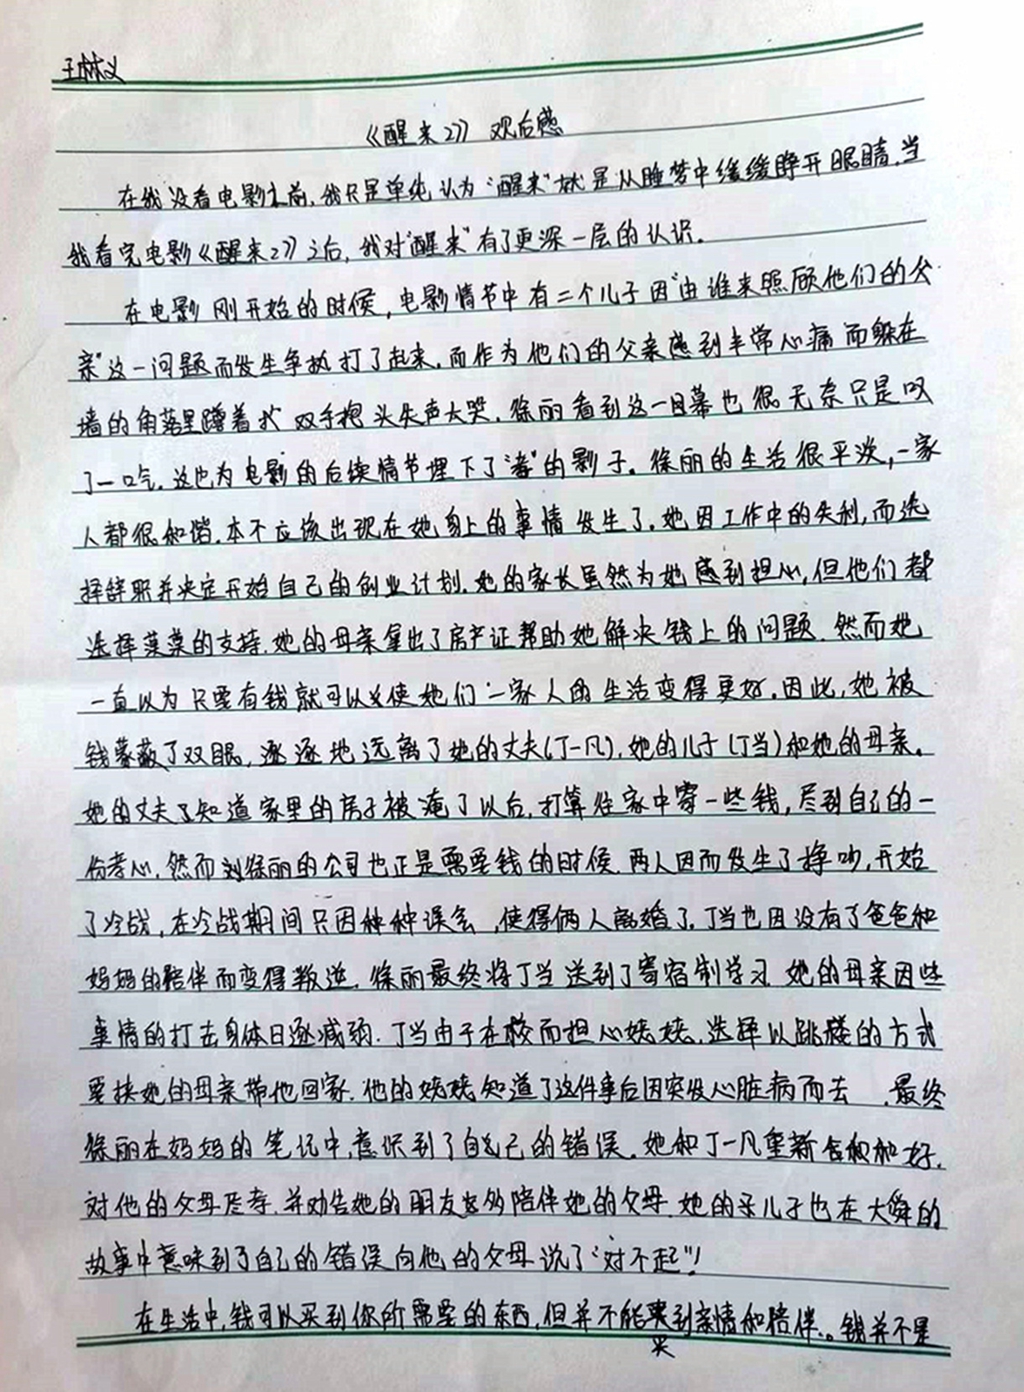 王林义
《醒来2》 观后感
在我没看电影之前，我只是单纯认为"醒来"就是从睡梦中缓缓睁开眼睛，当
我看完电影《醒来2》之后，我对"醒来"有了更深一层的认识。
在电影刚开始的时候，电影情节中有二个儿子因"由谁来照顾他们的父
亲"这一问题而发生争执打了起来，而作为他们的父亲感到非常心痛而躲在
墙的角落里蹲着 双手抱头失声大哭，徐丽看到这一目幕也很无奈只是叹
了一口气，这也为电影的后续情节埋下了"孝"的影子。徐丽的生活很平淡，一家
人都很和谐，本不应该出现在她身上的事情发生了，她因工作中的失利，而选
择辞职并决定开始自己的创业计划，她的家长虽然为她感到担心，但他们都
选择默默的支持，她的母亲拿出了房产证帮助她解决钱上的问题，然而她
一直以为只要有钱就可以使她们一家人的生活变得更好，因此，她被
钱蒙蔽了双眼，逐逐地远离了她的丈夫(丁一凡)，她的儿子(丁当)和她的母亲。
她的丈夫知道家里的房子被淹了以后，打算往家中寄一些钱，尽到自己的一
份孝心，然而徐丽的公司也正是需要钱的时候，两人因而发生了挣吵，开始
了冷战，在冷战期间只因种种误会，使得俩人离婚了，丁当也因没有了爸爸和
妈妈的陪伴而变得叛逆，徐丽最终将丁当送到了寄宿制学习，她的母亲因些
事情的打击身体日逐减弱，丁当由于在校而担心姥姥，选择以跳楼的方式
要挟她的母亲带他回家，他的姥姥知道了这件事后因突发心脏病而去，最终
徐丽在妈妈的笔记中，意识到了自己的错误，她和丁一凡重新和好，
对他的父母尽孝，并劝告她的朋友多陪伴她的父母，她的儿子也在大舜的
故事中意味到了自己的错误向他的父母说了"对不起"！
在生活中，钱可以买到你所需要的东西，但并不能买到亲情和陪伴。钱并不是